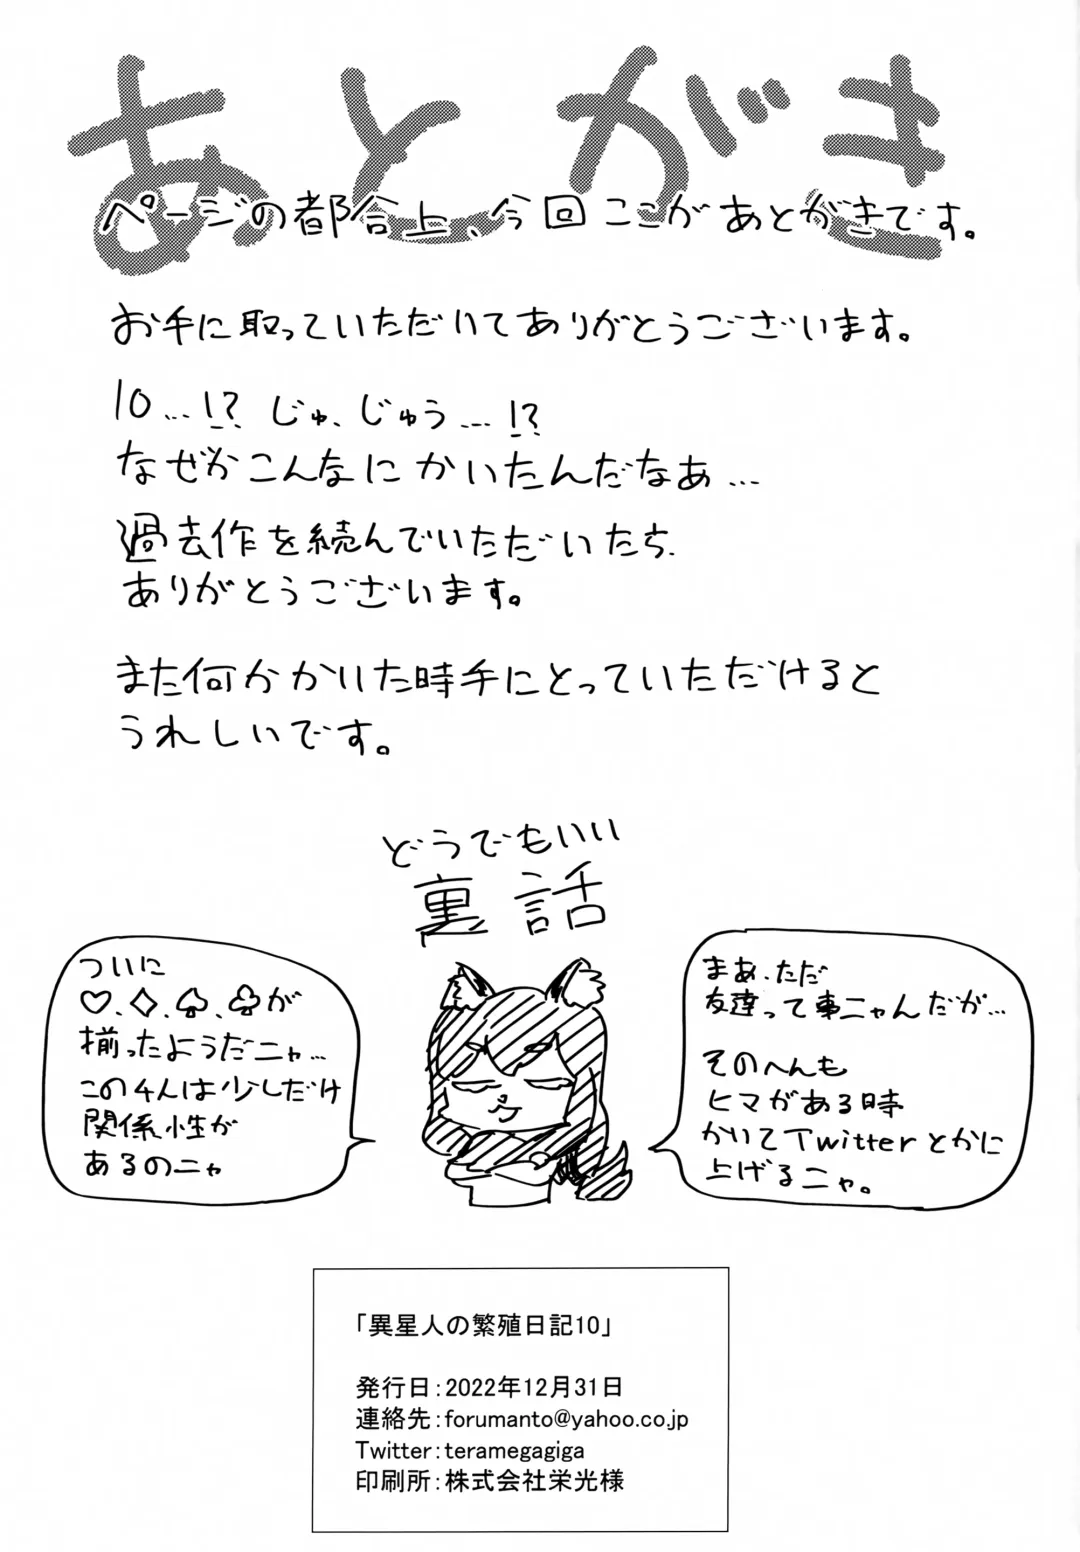 あとがき
ページの都合上、今回ここがあとがきです。
お手に取っていただいてありがとうございます。
10…!? じゅ、じゅう…!?
なぜかこんなにかいたんだなあ…
過去作を続んでいただいたち、
ありがとうございます。
また何かかいた時手にとっていただけると
うれしいです。
どうでもいい
裏話
ついに
♡、♢、♤、♧が
揃ったようだニャ…
この4人は少しだけ
関係性が
あるのニャ
まあ、ただ
友達って事ニャんだが…
そのへんも
ヒマがある時
かいてTwitterとかに
上げるニャ。
「異星人の繁殖日記10」
発行日：2022年12月31日
連絡先：forumanto@yahoo.co.jp
Twitter：teramegagiga
印刷所：株式会社栄光様